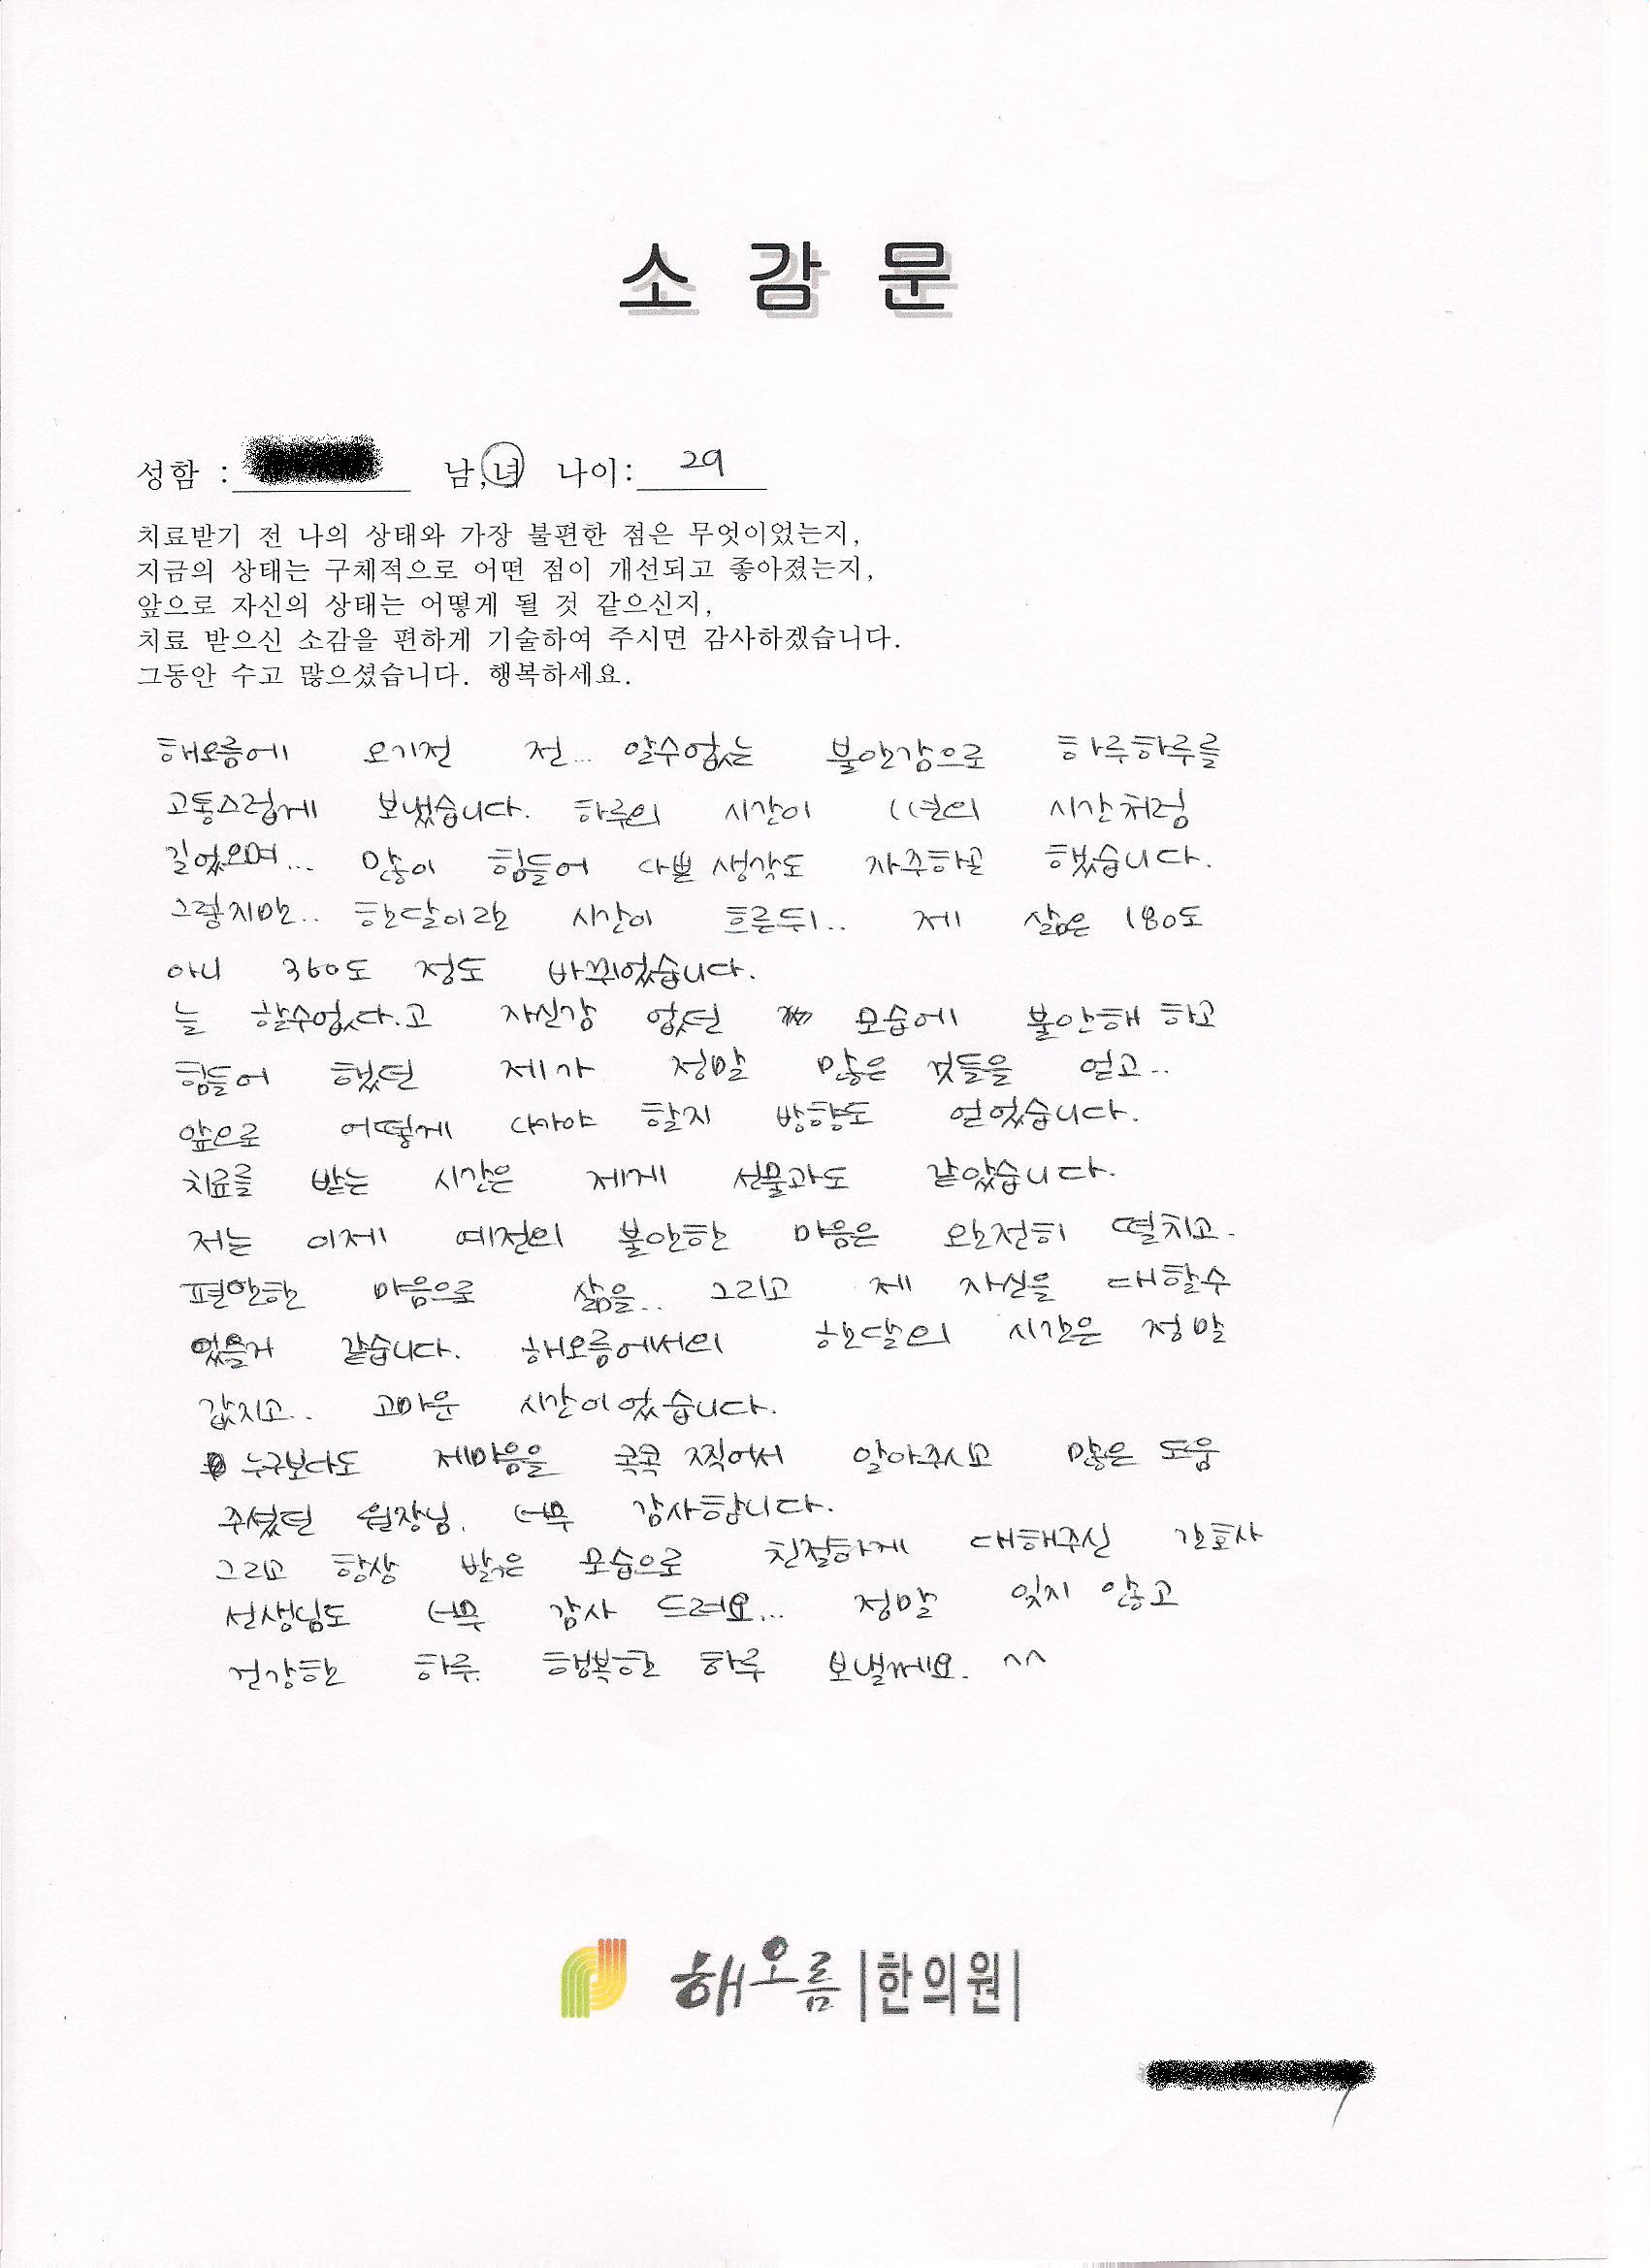 소 감 문
성함 : 남,녀 나이: 29
치료받기 전 나의 상태와 가장 불편한 점은 무엇이었는지,
지금의 상태는 구체적으로 어떤 점이 개선되고 좋아졌는지,
앞으로 자신의 상태는 어떻게 될 것 같으신지,
치료 받으신 소감을 편하게 기술하여 주시면 감사하겠습니다.
그동안 수고 많으셨습니다. 행복하세요.
해오름에 오기전 전... 알수없는 불안감으로 하루하루를
고통스럽게 보냈습니다. 하루의 시간이 11년의 시간처럼
길었으며... 많이 힘들어 나쁜 생각도 자주하곤 했습니다.
그렇지만.. 한달이란 시간이 흐른뒤.. 제 삶은 180도
아니 360도 정도 바뀌었습니다.
늘 할수없다.고 자신감 없던 모습에 불안해 하고
힘들어 했던 제가 정말 많은 것들을 얻고..
앞으로 어떻게 나가야 할지 방향도 얻었습니다.
치료를 받는 시간은 제게 선물과도 같았습니다.
저는 이제 예전의 불안한 마음은 완전히 떨치고.
편안한 마음으로 삶을.. 그리고 제 자신을 대할수
있을거 같습니다. 해오름에서의 한달의 시간은 정말
값지고.. 고마운 시간이었습니다.
누구보다도 제마음을 콕콕 찍어서 알아주시고 많은 도움
주셨던 원장님. 너무 감사합니다.
그리고 항상 밝은 모습으로 친절하게 대해주신 간호사
선생님도 너무 감사 드려요... 정말 잊지 않고
건강한 하루. 행복한 하루 보낼께요. ^^
해오름|한의원|